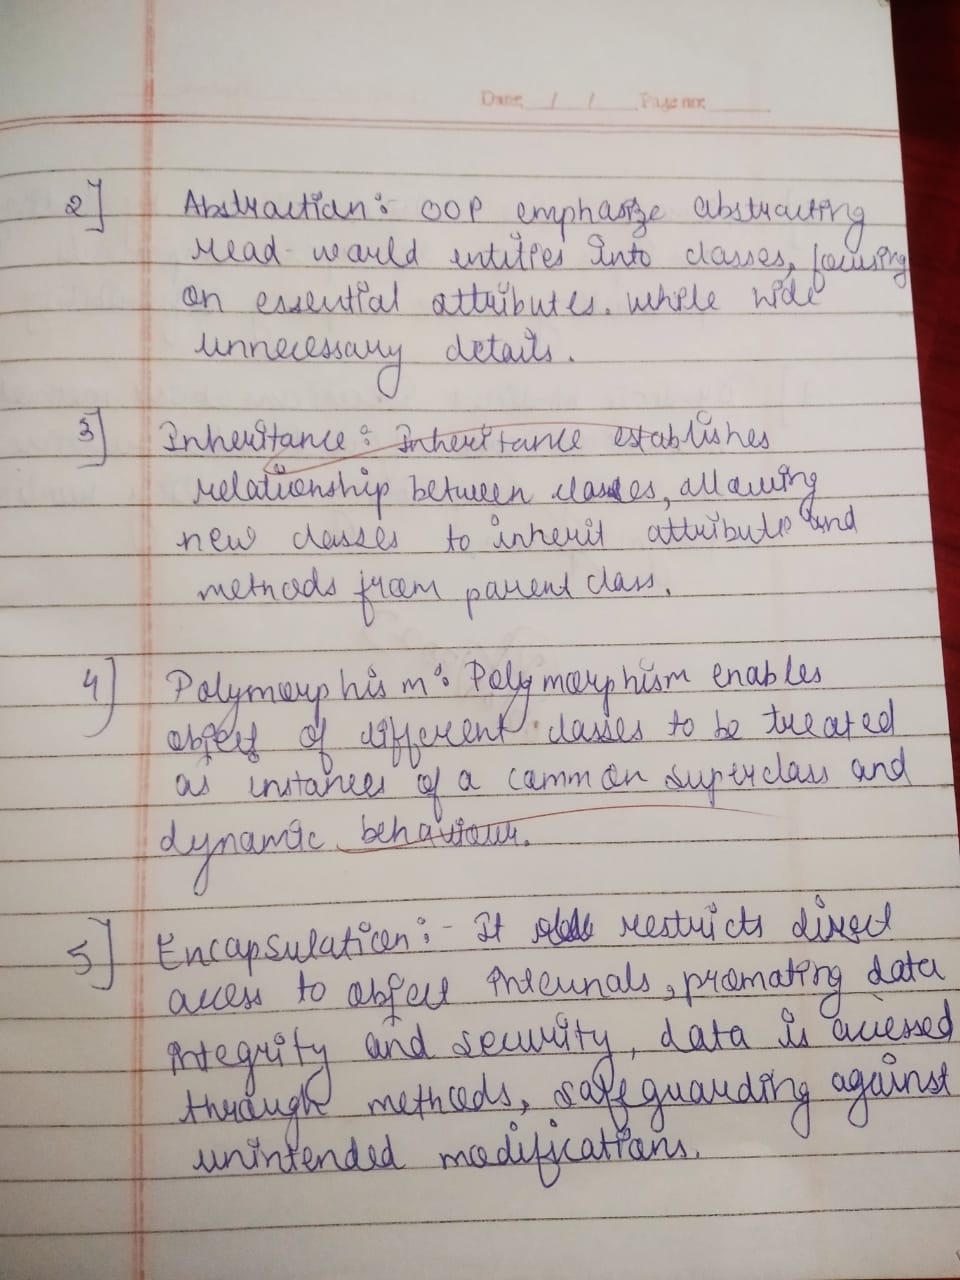 Date / / Page no:
2] Abstraction: OOP emphasize abstracting
read-world entities into classes, focusing
on essential attributes. while hide
unnecessary details.
3] Inheritance: Inheritance establishes
relationship between classes, allowing
new classes to inherit attribute and
methods from parent class.
4] Polymorphism: Polymorphism enables
objects of different classes to be treated
as instances of a common superclass and
dynamic behaviour.
5] Encapsulation:- It restricts direct
access to object internals, promoting data
integrity and security, data is accessed
through methods, safeguarding against
unintended modifications.